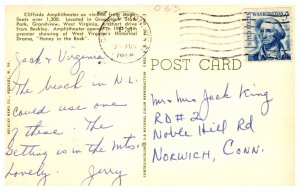 Cliffside Amphitheatre as viewed from stage.
Seats over 1,300. Located in Grandview State
Park, Grandview, West Virginia, a short drive
from Beckley. Amphitheatre opened in 1961 with
premier showing of West Virginia's Historical
Drama, "Honey in the Rock"
WASHINGTON
POST CARD
Jack & Virginia
The beach in N.L.
could use one
of these. The
setting is in the mts.
Lovely. Jerry
Mr & Mrs Jack King
RD #2
Noble Hill Rd
Norwich, Conn.